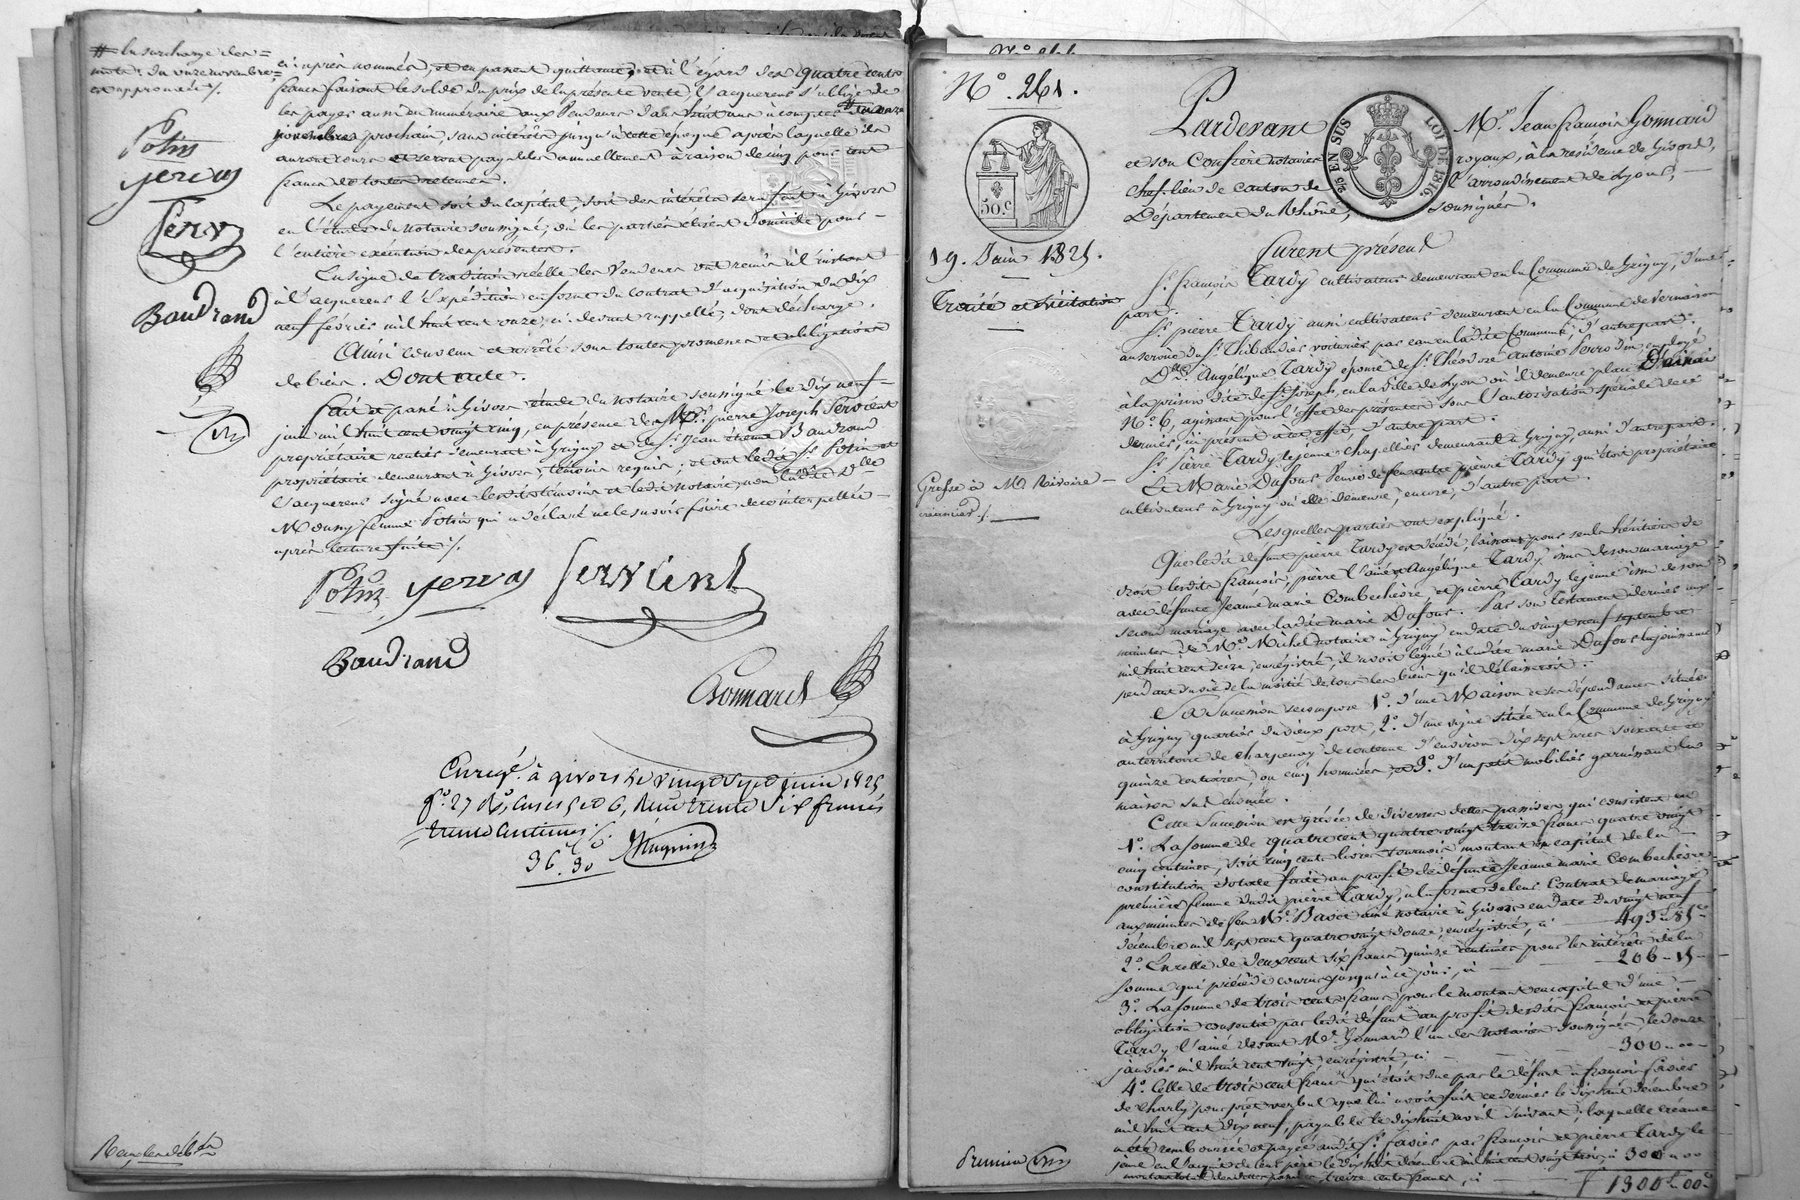 # la surcharge des
mots: du onze novembre
est approuvée /.
Potin
gervas
Serv
Baudrand
ci-après nommés, et en passent quittance; et à l'égard des quatre cents
francs faisant le solde du prix de la présente vente, l'acquereur s'oblige de
les payer aussi en numéraire aux Vendeurs dans huit ans à compter # du onze
novembre prochain, sans intérêts jusqu'à cette époque après laquelle ils
auront cours et seront payables annuellement à raison de cinq pour cent
francs de toutes retenues.
Le payement soit du capital, soit des intérêts sera fait à Givors
en l'étude du notaire soussigné, où les parties élisent domicile pour
l'entière exécution des présentes.
En signe de tradition réelle les Vendeurs ont remis à l'instant
à l'acquereur l'Expédition en forme du contrat d'acquisition du dix
neuf février mil huit cent onze, ci-devant rappellé, dont décharge.
Ainsi convenu et arrêté sous toutes promesses et obligations
de biens. Dont acte.
Fait et passé à Givors étude du notaire soussigné le dix neuf
juin mil huit cent vingt cinq, en présence de Mr. pierre Joseph Servient
propriétaire rentier demeurant à Grigny et de Sr. Jean Baudrand
propriétaire demeurant à Givors, témoins requis; et ont ledit Sr. Potin et
l'acquereur signé avec lesdits témoins et ledit notaire, non ladite dlle
Mouny femme Potin qui a déclaré ne le savoir faire de ce interpellée
après lecture faite /.
Potin gervas Servient
Baudrand
Gonnard
Enregé. à givors le vingt sept juin 1825
fo. 27 Ro. cases 5 et 6, Reçu trente six francs
trente centimes /.
36.30 Mugnin
No. 261.
Pardevant Me. Jean françois Gonnard
et son Confrère notaires royaux, à la résidence de Givors,
chef-lieu de canton de l'arrondissement de Lyon,
Département du Rhône, soussignés.
25 EN SUS
LOI DE 1816.
50c
19. Juin 1825.
Traité et Licitation
Grosse à
créancier /.
Furent présens
Sr. françois Tardy cultivateur demeurant en la Commune de Grigny, d'une
part.
Sr. pierre Tardy aussi cultivateur demeurant en la Commune de Vernaison
au service du Sr. Thibaudier voiturier par eau en ladite Commune, d'autre part.
Dlle. Angélique Tardy épouse de Sr. Théodore Antoine Perrodin employé
à la prison dite de St. Joseph, en la Ville de Lyon où il demeure place d'ainai
No. 6, agissant pour l'effet des présentes sous l'autorisation spéciale de ce
dernier, ici présent à cet effet, d'autre part.
Sr. Pierre Tardy le jeune chapellier demeurant à Grigny, aussi d'autre part.
Et Marie Dufour Veuve de feu autre pierre Tardy qui étoit propriétaire
cultivateur à Grigny où elle demeure, encore, d'autre part.
Lesquelles parties ont expliqué.
Que ledit défunt pierre Tardy est décédé, laissant pour seuls héritiers de
droit lesdits françois, pierre l'aîné et Angélique Tardy issus de son mariage
avec défunte Jeanne marie Combechèvre et pierre Tardy le jeune issu de son
second mariage avec ladite marie Dufour. Par son Testament dernier aux
minutes de Me. Michel notaire à Grigny en date du vingt neuf septembre
mil huit cent seize, enregistré, il avoit légué à ladite marie Dufour la jouissance
pendant sa vie de la moitié de tous les biens qu'il délaisseroit.
Sa Succession se compose 1o. d'une Maison et ses dépendances située
à Grigny quartier du vieux port, 2o. d'une vigne située en la Commune de Grigny
au territoire de charpenay de contenue d'environ dix sept ares soixante et
quinze centiares, ou cinq hommées, et 3o. d'un petit mobilier garnissant la
maison sus énoncée.
Cette Succession est grévée de diverses dettes passives qui consistent en
1o. La somme de quatre cent quatre vingt treize francs quatre vingt
cinq centimes, soit cinq cents livres tournois montant en capital de la
constitution dotale faite au profit de défunte Jeanne marie Combechèvre
première femme dudit pierre Tardy, à la forme de leur Contrat de mariage
aux minutes de feu Me. aîné notaire à Givors en date du vingt neuf
décembre mil sept cent quatre vingt douze, enregistré, ci 493f.85c
2o. En celle de deux cent six francs quinze centimes pour les intérêts de la
somme qui précède courus jusqu'à ce jour, ci 206-15-
3o. La somme de trois cents francs pour le montant en capital d'une
obligation consentie par ledit défunt au profit desdits françois et pierre
Tardy l'aîné devant Me. Gonnard l'un des notaires soussignés, le douze
janvier mil huit cent vingt, enregistré, ci 300-00-
4o. Celle de trois cent francs qui étoit due par le défunt à françois favier
de Charly pour prêt verbal que lui avoit fait ce dernier le dix huit décembre
mil huit cent dix neuf, payable le dix huit avril suivant, laquelle créance
a été remboursée et payée audit Sr. favier par françois et pierre Tardy le
jeune en l'acquit de leur père le dix huit décembre mil huit cent vingt 300-00
montant total des dettes passives, treize cents francs, ci 1300f.00c